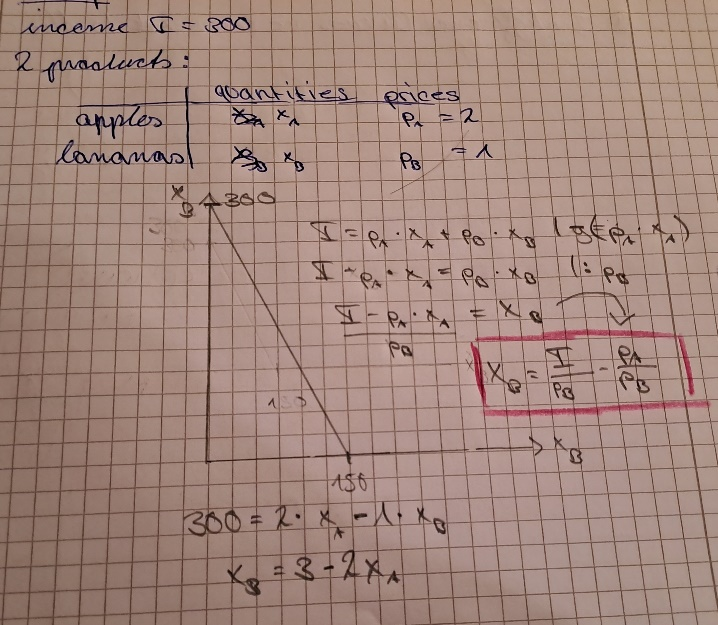 income I = 300
2 products:
quantities prices
apples x_A p_A = 2
bananas x_B p_B = 1
x_B 300
I = p_A · x_A + p_B · x_B
I - p_A · x_A = p_B · x_B |: p_B
I - p_A · x_A / p_B = x_B
x_B = I/p_B - p_A/p_B
150
x_B
150
300 = 2 · x_A - 1 · x_B
x_B = 3 - 2x_A